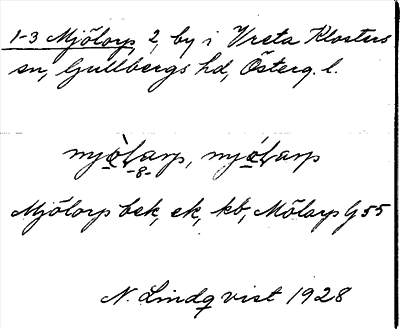 1-3 Mjölorp, 2, by i Vreta Klosters
sn, Gullbergs hd, Österg. l.
mjòlarp, mjólarp
-8-
Mjölorp bek, ek, kb, Mölarp G 55
N. Lindqvist 1928